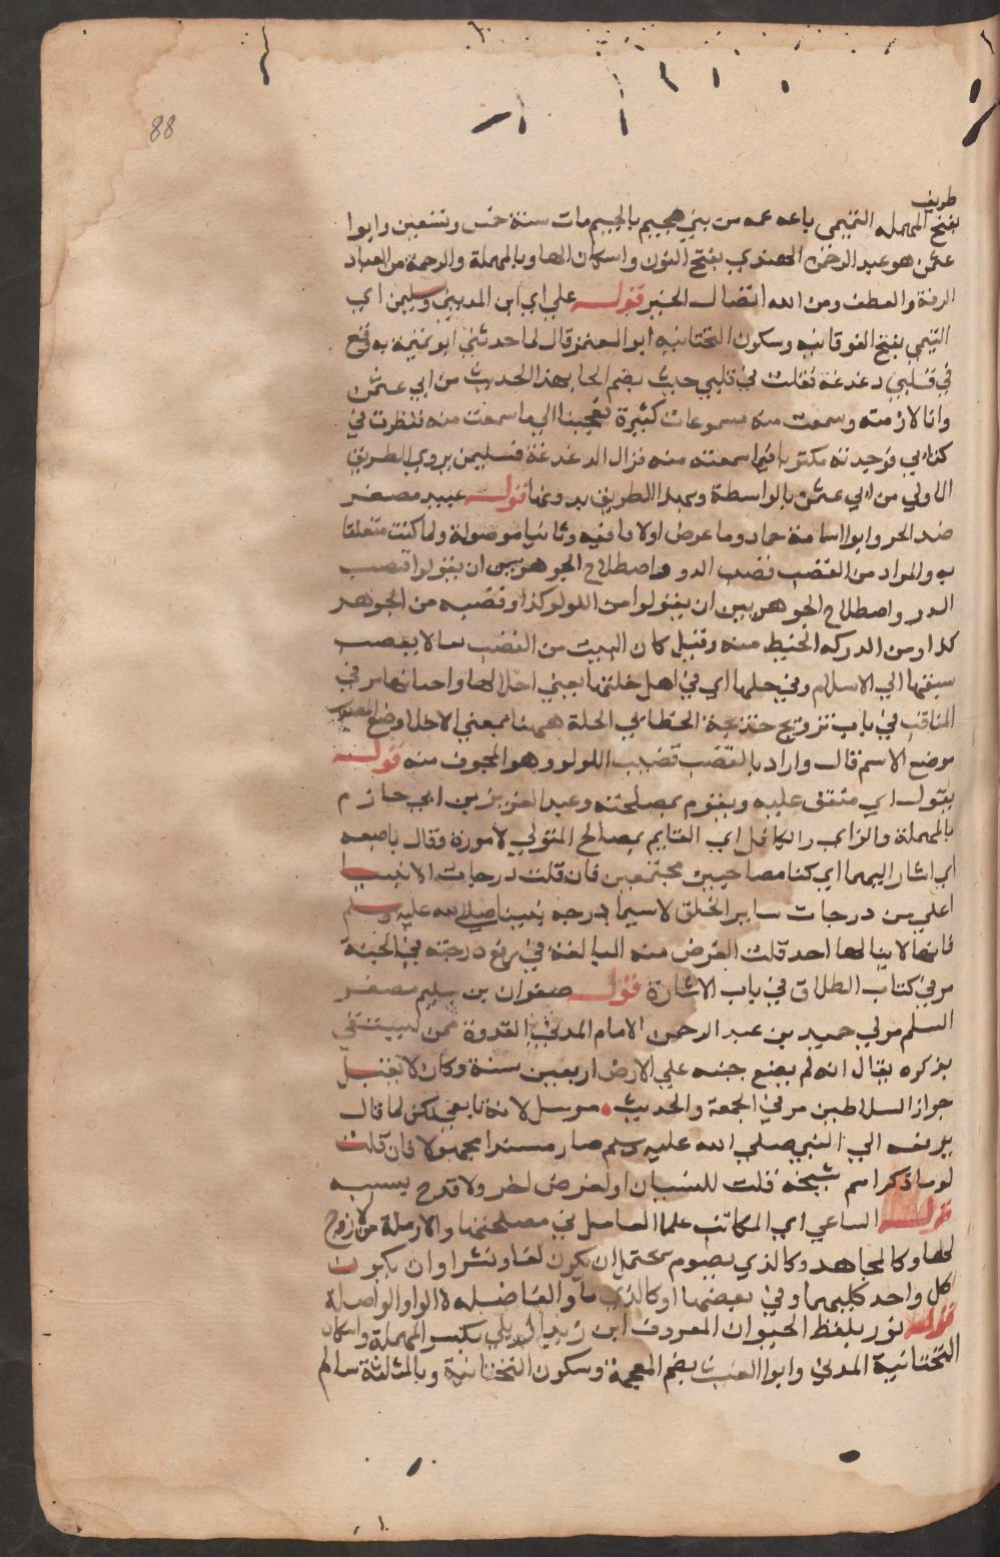 88
طريف
بفتح المهمله التيمي باعه عمه من بني هجيم بالجيم مات سنة خمس وتسعين وابوا
عثمن هو عبد الرحمن النهدي بفتح النون واسكان الها وبالمهملة والرحمة من العباد
الرقة والعطف ومن الله ايصال الخير قوله علي اي ابن المديني وسليمن اي
التيمي بفتح الفوقانيه وسكون التحتانيه ابو المعتمر قال لما حدثني ابو تميمة به وقع
في قلبي دغدغة فقلت في قلبي حدث بضم الحا بهذا الحديث من ابي عثمن
وانا لازمته وسمعت منه مسموعات كثيرة فعجبنا اني ما سمعت منه فنظرت في
كتابي فوجدته مكتوبا فيما سمعته منه فزال الدغدغة فسليمن يروي الطريق
الاولي من ابي عثمن بالواسطة وبهذا الطريق بدونها قوله عبيد مصغر
ضد الحر وابوا اسامة حماد وما عرض اولا نافية وثانيا موصولة ولما كنت متعلقا
به والمراد من القصب قصب الدر واصطلاح الجوهريين ان يقولوا قصب
الدر واصطلاح الجوهريين ان يقولوا من اللولو كذا وقصبه من الجوهر
كذا ومن الدر كذا لخيط منه وقيل كان البيت من القصب تفالا بقصب
سبقتها الي الاسلام وفي خلتها اي في اهل خلتها يعني اخلالها واحبائها مر في
المناقب في باب تزويج خديجة الخطابي الخلة ههنا بمعني الاخلا وضع المصدر
موضع الاسم قال واراد بالقصب قضيب اللولو وهو المجوف منه قوله
يقول اي متفق عليه ويقوم بمصلحته وعبد العزيز بن ابي حازم
بالمهملة والزاي والكافل اي القايم بمصالح المتولي لاموره وقال باصبعه
اي اشار اليهما اي كنا مصاحبين مجتمعين فان قلت درجات الانبيا
اعلي من درجات ساير الخلق لاسيما درجه نبينا صلي الله عليه وسلم
فانها لا ينالها احد قلت الغرض منه المبالغة في رفع درجته في الجنة
مر في كتاب الطلاق في باب الاشارة قوله صفوان بن سليم مصغر
السلم مولي حميد بن عبد الرحمن الامام المدني القدوة ممن يستشفي
بذكره يقال انه لم يضع جنبه علي الارض اربعين سنة وكان لا يقبل
جوايز السلاطين مر في الجمعة والحديث مرسل لانه تابعي لكن لما قال
يرفعه الي النبي صلي الله عليه وسلم صار مسندا مجهولا فان قلت
لم ما ذكر اسم شيخه قلت للنسيان او لغرض اخر ولا قدح بسببه
قوله الساعي اي المكاتب علما العامل في مصلحتها والارملة من لا زوج
لها وكالمجاهد وكالذي يصوم يحتمل ان يكون لفا ونشرا وان يكون
كل واحد كليهما وفي بعضها او كالذي باو الفاصلة لا الواو الواصلة
قوله ثور بلفظ الحيوان المعروف ابن زيد الديلي بكسر المهملة واسكان
التحتانية المدني وابوا الغيث بضم المعجمة وسكون التحتانية وبالمثلثة سالم